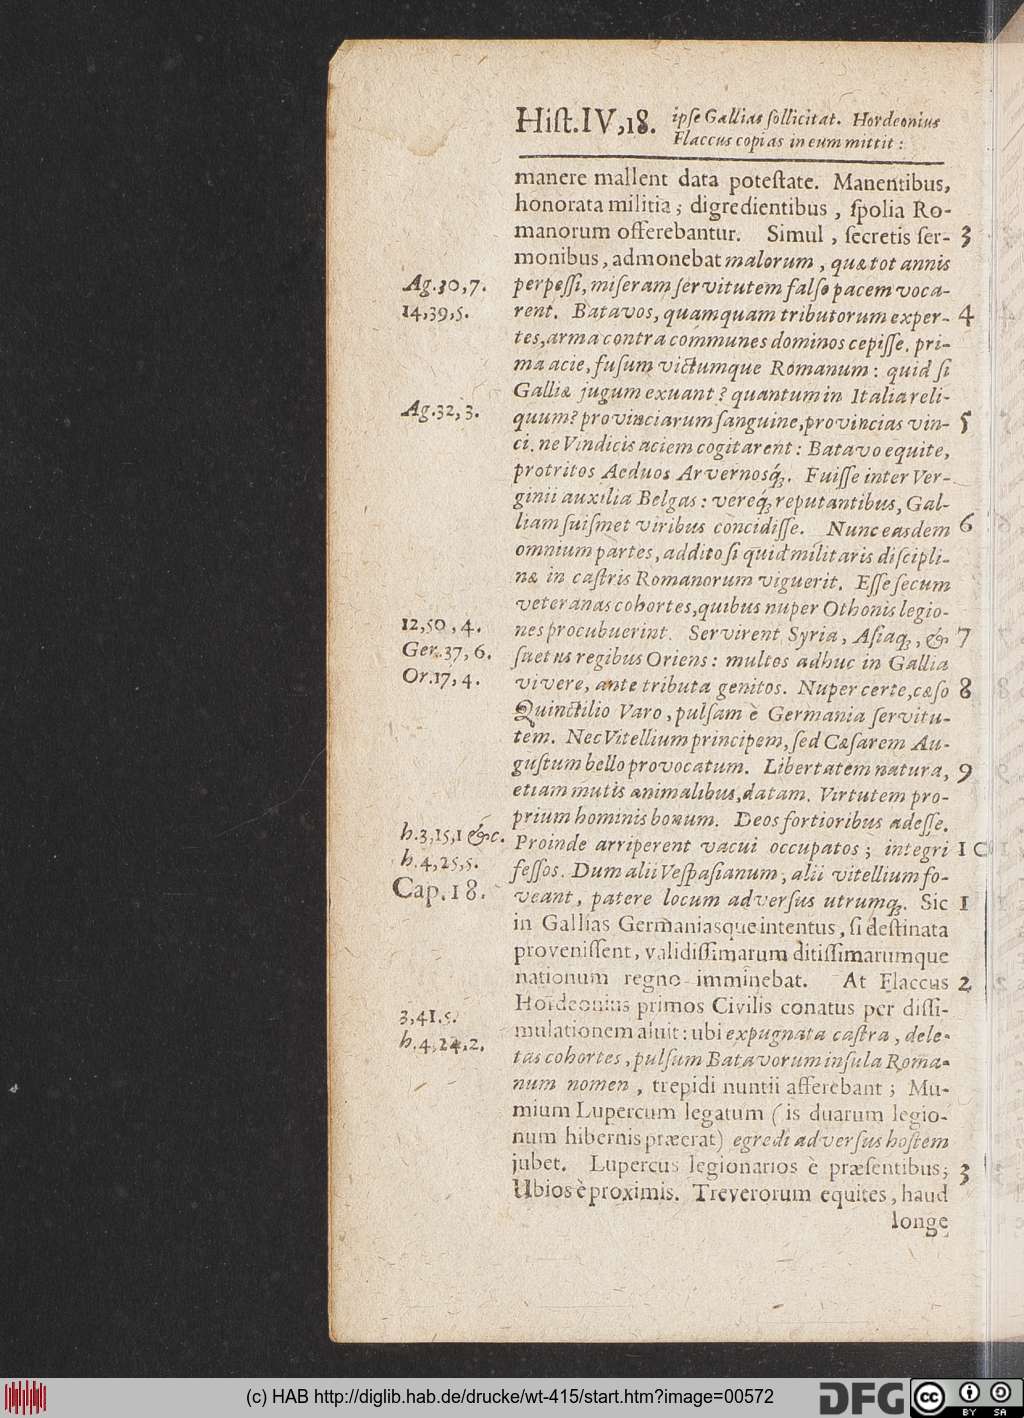 Hiſt.IV,18. ipſe Gallias ſollicitat. Hordeonius
Flaccus copias in eum mittit :
manere mallent data poteſtate. Manentibus,
honorata militia ; digredientibus , ſpolia Ro-
manorum offerebantur. Simul , ſecretis ſer- 3
monibus, admonebat malorum , quæ tot annis
Ag.30,7. perpeſſi, miſeram ſervitutem falſo pacem voca-
14,39,5. rent. Batavos, quamquam tributorum exper- 4
tes, arma contra communes dominos cepiſſe. pri-
ma acie, fuſum victumque Romanum : quid ſi
Galliæ jugum exuant ? quantum in Italia reli-
Ag.32,3. quum? provinciarum ſanguine, provincias vin- 5
ci. ne Vindicis aciem cogitarent : Batavo equite,
protritos Aeduos Arvernosq́;. Fuiſſe inter Ver-
ginii auxilia Belgas : vereq́; reputantibus, Gal-
liam ſuiſmet viribus concidiſſe. Nunc easdem 6
omnium partes, addito ſi quid militaris diſcipli-
næ in caſtris Romanorum viguerit. Eſſe ſecum
veteranas cohortes, quibus nuper Othonis legio-
12,50,4. nes procubuerint. Servirent Syria, Aſiaq;, & 7
Ger.37,6. ſuetus regibus Oriens : multos adhuc in Gallia
Or.17,4. vivere, ante tributa genitos. Nuper certe, cæſo 8
Quinctilio Varo, pulſam è Germania ſervitu-
tem. Nec Vitellium principem, ſed Cæſarem Au-
guſtum bello provocatum. Libertatem natura, 9
etiam mutis animalibus, datam. Virtutem pro-
prium hominis bonum. Deos fortioribus adeſſe.
h.3,15,1 &c. Proinde arriperent vacui occupatos ; integri 10
h.4,25,5. feſſos. Dum alii Veſpaſianum, alii vitellium fo-
Cap.18. veant, patere locum adverſus utrumq;. Sic 1
in Gallias Germaniasque intentus, ſi deſtinata
proveniſſent, validiſſimarum ditiſſimarumque
nationum regno imminebat. At Flaccus 2
Hordeonius primos Civilis conatus per diſſi-
3,41.5. mulationem aluit : ubi expugnata caſtra, dele-
h.4,24,2. tas cohortes, pulſum Batavorum inſula Roma-
num nomen , trepidi nuntii afferebant ; Mu-
mium Lupercum legatum ( is duarum legio-
num hibernis præerat) egredi adverſus hoſtem
jubet. Lupercus legionarios è præſentibus; 3
Ubios è proximis. Treverorum equites, haud
longe
(c) HAB http://diglib.hab.de/drucke/wt-415/start.htm?image=00572
DFG
cc BY SA